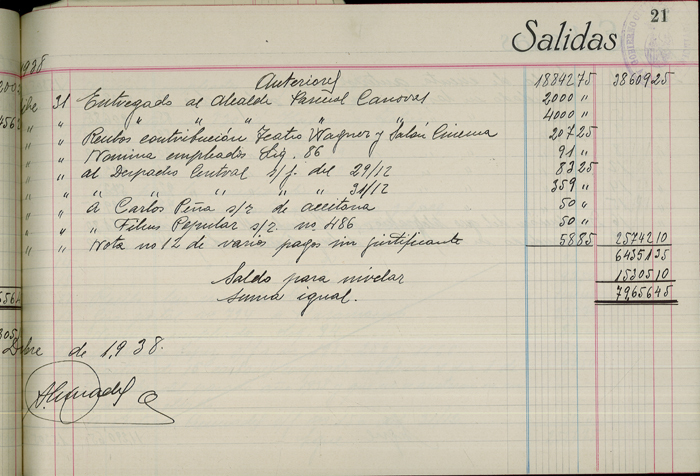 21
Salidas
1938
Anteriores 1884275 3860925
31 Entregado al Alcalde Pascual Canovas 2000 "
" " " " " 4000 "
" Recibos contribución Teatro Wagner y Salón Cinema 20725
" Nomina empleados Sig. 86 91 "
" al Despacho Central s/f. del 29/12 8325
" " " " " " 31/12 359 "
" á Carlos Peña s/r de aceituna 50 "
" " Films Popular s/r. no 486 50 "
" Nota no 12 de varios pagos sin justificante 5885 2574210
6435135
Saldo para nivelar 1530510
suma igual. 7965645
Dbre de 1,938.